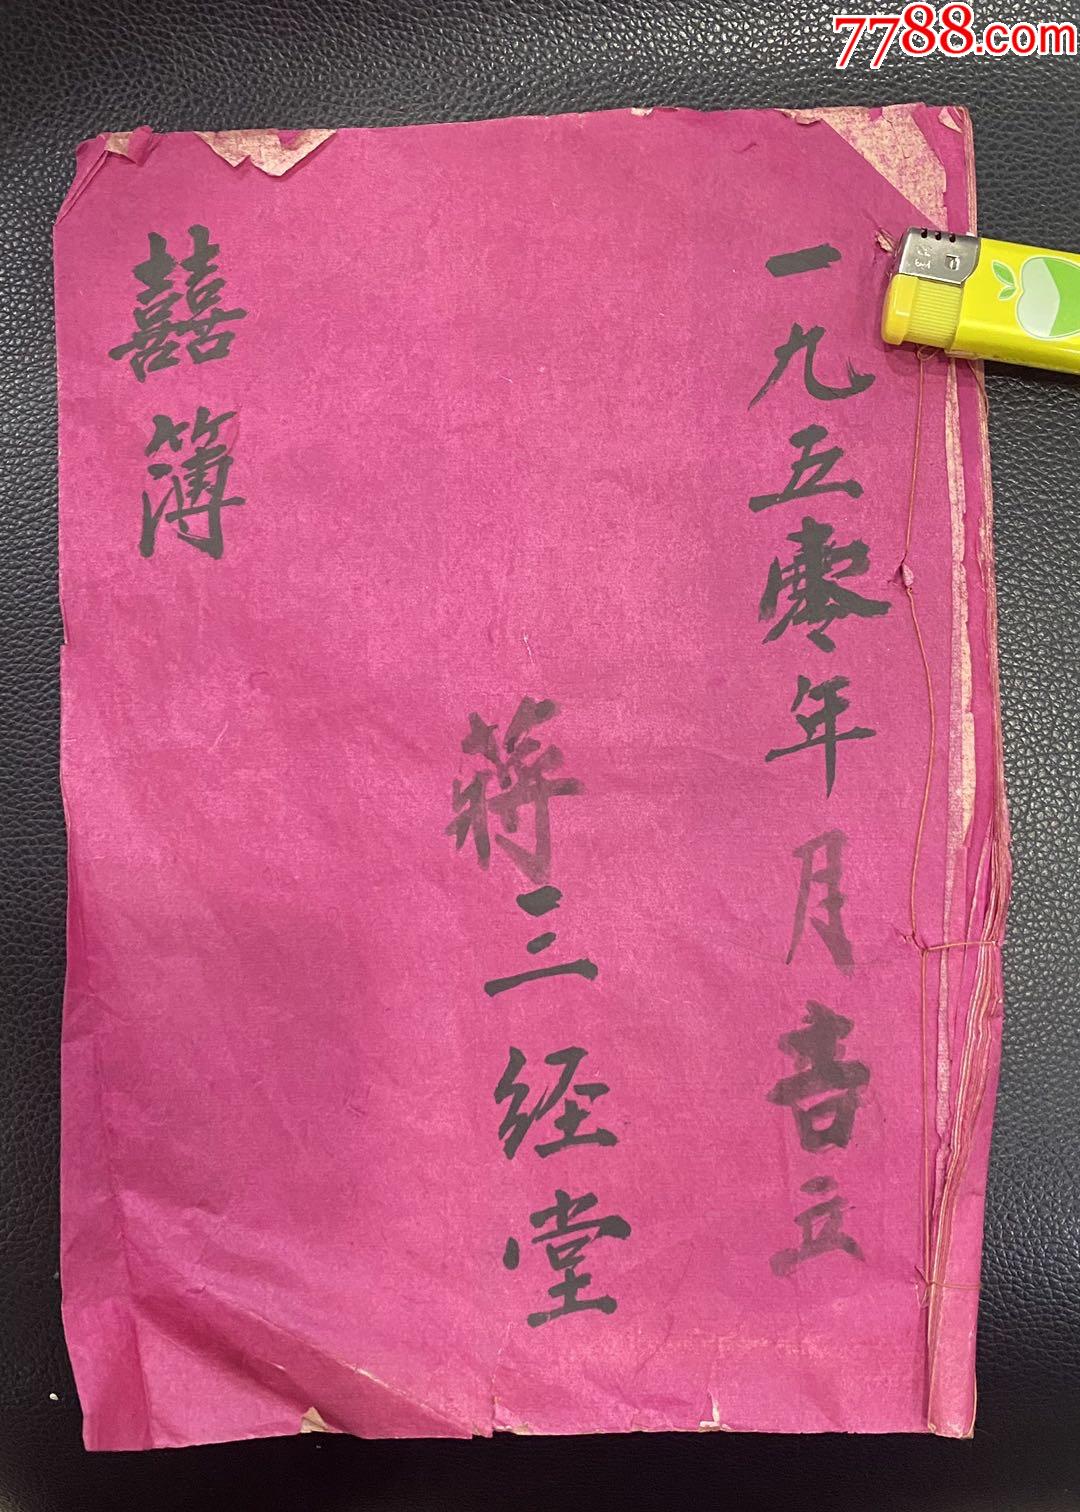 7788.com
一九五零年月吉立
蒋三经堂
囍簿